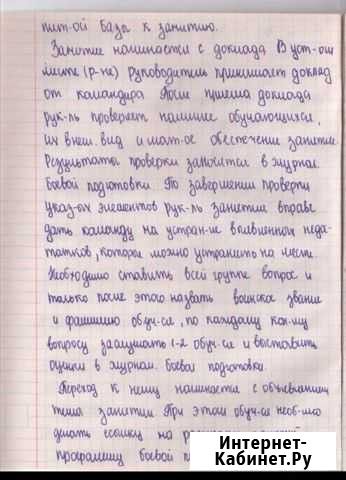 мат-ой базы к занятию.
Занятие начинается с доклада В уст-ом
месте (р-не) руководитель принимает доклад
от командира После приема доклада
рук-ль проверяет наличие обучающихся,
их внеш. вид и мат-ое обеспечение занятия.
Результаты проверки заносится в журнал
боевой подготовки По завершении проверки
указ-ых элементов рук-ль занятия вправе
дать команду на устран-ие выявленных недо-
татков, которое можно устранить на месте.
Необходимо ставить всей группе вопрос и
только после этого назвать воинское звание
и фамилию обуч-ся, по каждому
вопросу заслушать 1-2 обуч-ся и выставить
оценки в журнал боевой подготовки.
Переход к нему начинается с объявления
темы занятия При этом обуч-ся необ-мо
делать ссылку на
программу боевой
Интернет-
Кабинет.Ру